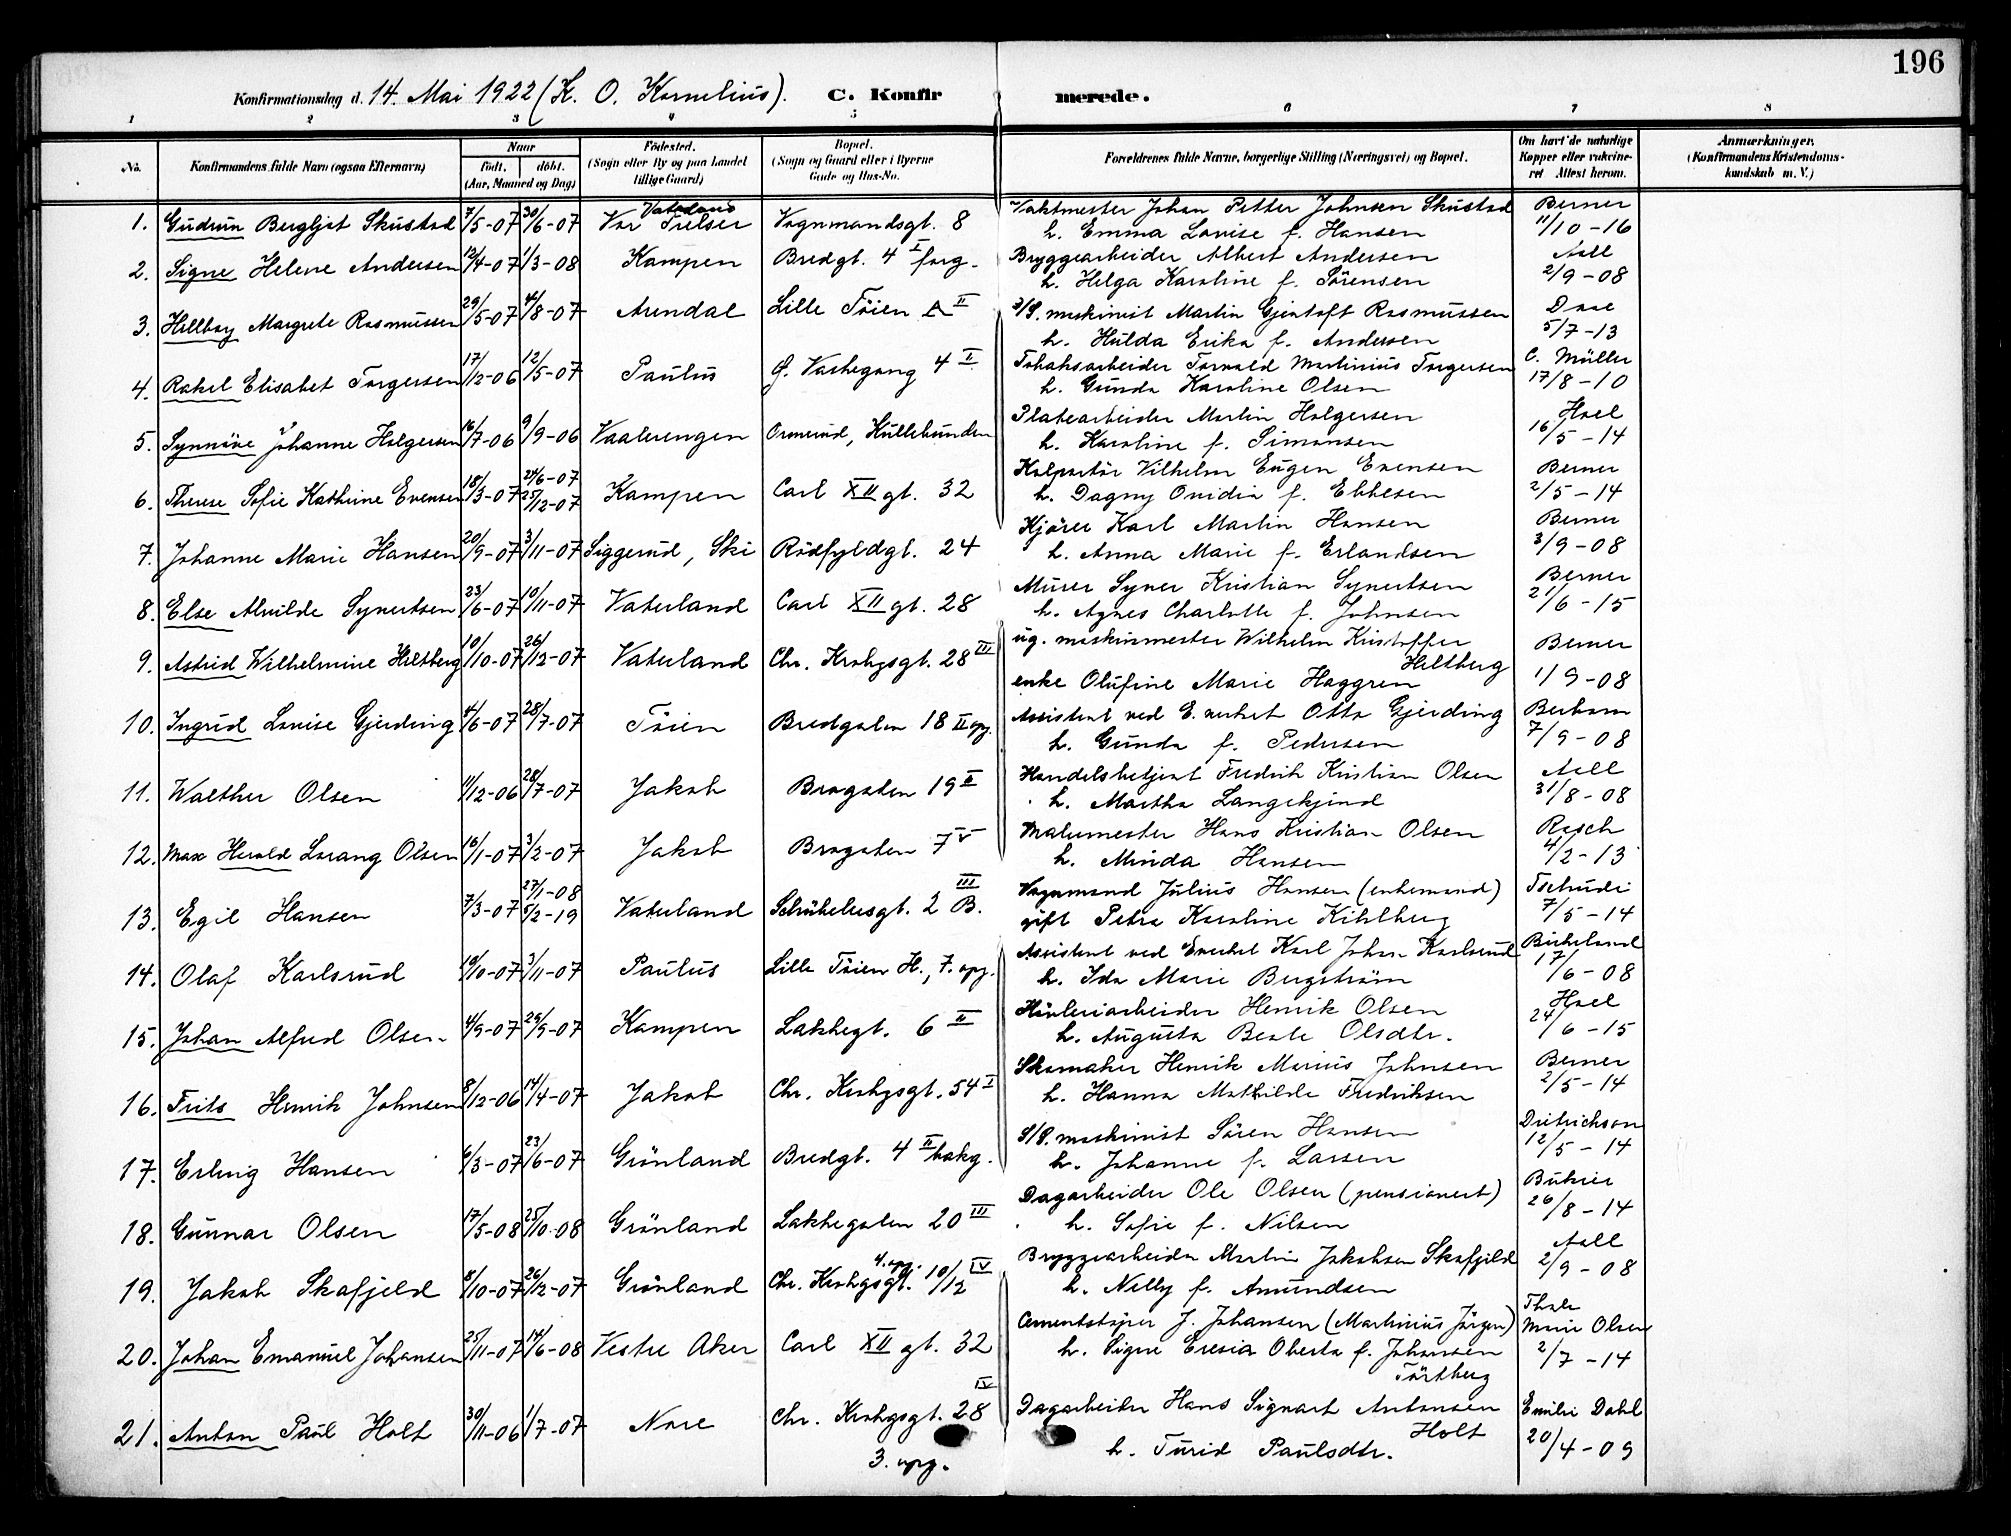 196
Konfirmationsdag d. 14. Mai 1922 (K. O. Kornelius). C. Konfirmerede.
1 2 3 4 5 6 7 8
No. Konfirmandens fulde Navn (ogsaa Efternavn) Naar født, døbt. (Aar, Maaned og Dag) Fødested. (Sogn eller By og paa Landet tillige Gaard) Bopæl. (Sogn og Gaard eller i Byerne Gade og Hus-No. Forældrenes fulde Navne, borgerlige Stilling (Næringsvei) og Bopæl. Om havt de naturlige Kopper eller vakcineret Attest herom. Anmærkninger. (Konfirmandens Kristendomskundskab m. V.)
1. Gudrun Bergljot Skustad 7/5-07 30/6-07 Vor Frelser Vaterland Vognmandsgt. 8 Vaktmester Johan Petter Johnsen Skustad Berner
h. Emma Lovise f. Hansen 11/10-16
2. Signe Helene Andersen 12/4-07 1/3-08 Kampen Bredgt. 4 I forg. Bryggearbeider Albert Andersen Aall
h. Helga Karoline f. Sörensen 2/9-08
3. Hellbog Margrete Rasmussen 29/5-07 4/8-07 Arendal Lille Töien A II S/S. maskinist Martin Gjentoft Rasmussen Daae
h. Hulda Erika f. Andersen 5/7-13
4. Rakel Elisabet Torgersen 17/12-06 12/5-07 Paulus G. Vaskegang 4 II Tobaksarbeider Torvald Martinius Torgersen C. Müller
h. Gunda Karoline Olsen 17/8-10
5. Synnöve Johanne Holgersen 16/7-06 9/9-06 Vaalerengen Ormerud, Kullebunden Platearbeider Martin Holgersen Hoel
h. Karoline f. Simonsen 16/5-14
6. Therese Sofie Kathrine Evensen 18/3-07 24/6-07 25/12-07 Kampen Carl XII gt. 32 Kolportör Vilhelm Eugen Evensen Berner
h. Dagny Ovidia f. Ebbesen 2/5-14
7. Johanne Marie Hansen 20/9-07 3/11-07 Siggerud, Ski Rödfyldgt. 24 Kjörer Karl Martin Hansen Berner
h. Anna Marie f. Erlandsen 3/9-08
8. Else Alvilde Synertsen 23/6-07 10/11-07 Vaterland Carl XII gt. 28 Murer Syner Kristian Synertsen Berner
h. Agnes Charlotte f. Johnsen 21/6-15
9. Astrid Wilhelmine Hiltberg 10/10-07 26/12-07 Vaterland Chr. Krohgsgt. 28 III ug. maskinmester Wilhelm Kristoffer Hiltberg Berner
enke Olufine Marie Haggren 1/9-08
10. Ingrid Lovise Gjerding 4/6-07 28/7-07 Töien Bredgaten 18 II opg. Assistent ved E. verket Otto Gjerding Berham
h. Gunda f. Pedersen 7/9-08
11. Walther Olsen 11/12-06 28/7-07 Jakob Brogaten 19 II Handelsbetjent Fredrik Kristian Olsen Aall
h. Martha Langekjind 31/8-08
12. Max Harald Lorang Olsen 16/1-07 3/2-07 Jakob Brogaten 7 V Malermester Hans Kristian Olsen Rasch
h. Minda Hansen 4/2-13
13. Egil Hansen 7/3-07 27/1-08 5/2-19 Vaterland Schübelersgt. 2 B. III Vognmand Julius Hansen (enkemand) Tschudi
gift Petra Karoline Kihlberg 7/5-14
14. Olaf Karlsrud 10/10-07 3/11-07 Paulus Lille Töien H., 7. opg. Assistent ved Everket Karl Johan Karlsrud Birkeland
h. Ida Marie Bergström 17/6-08
15. Johan Alfred Olsen 4/9-07 29/9-07 Kampen Lakkegt. 6 II Hövleriarbeider Henrik Olsen Hoel
h. Augusta Beate Olsdtr. 24/6-15
16. Frits Henrik Johnsen 8/12-06 14/4-07 Jakob Chr. Krohgsgt. 54 I Skomaker Henrik Marius Johnsen Berner
h. Hanna Mathilde Fredriksen 2/5-14
17. Erling Hansen 6/3-07 23/6-07 Grönland Bredgt. 4 II bakg. S/S. maskinist Sören Hansen Dietrichson
h. Johanne f. Larsen 12/5-14
18. Gunnar Olsen 17/5-08 25/10-08 Grönland Lakkegaten 20 III Dagarbeider Ole Olsen (pensionert) Bukier
h. Sofie f. Nilsen 26/8-14
19. Jakob Skafjeld 8/10-07 26/12-07 Grönland Chr. Krohgsgt. 10/12 IV 4. opg. Bryggearbeider Martin Jakobsen Skafjeld Aall
h. Nelly f. Amundsen 2/9-08
20. Johan Emanuel Johansen 25/11-07 14/6-08 Vestre Aker Carl XII gt. 32 Cementstöper J. Johansen (Martinius Jörgen) Thale Marie Olsen
h. Signe Eresia Oberta f. Johansen Törtberg 2/7-14
21. Anton Paul Holt 30/11-06 1/7-07 Nore Chr. Krohgsgt. 28 IV Dagarbeider Hans Sigvart Antonsen Holt Emilie Dahl
3. opg. h. Turid Paulsdtr. 20/4-09